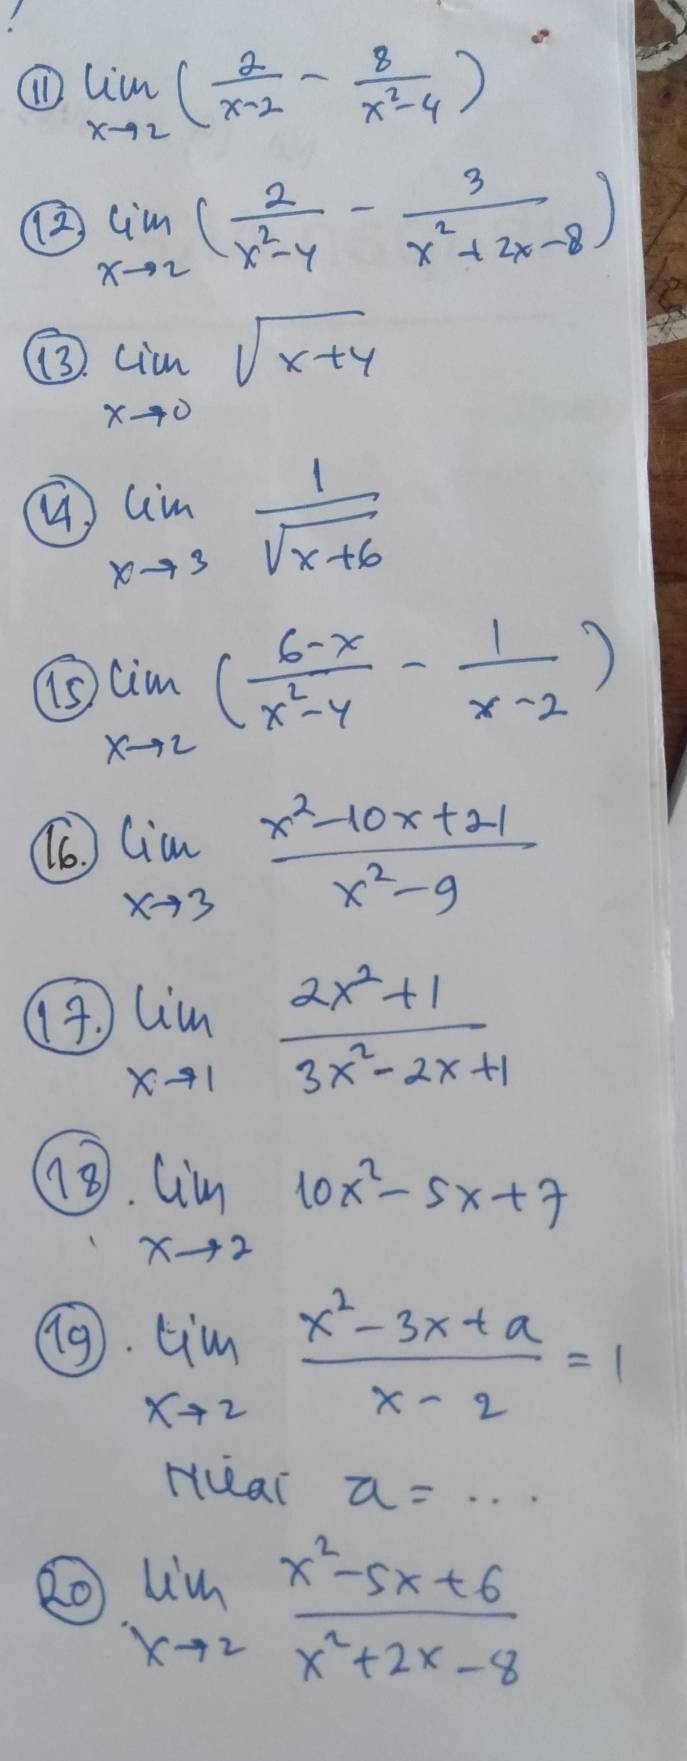 ⑪. lim x→2 ( 2/(x-2) - 8/(x²-4) )
⑫. lim x→2 ( 2/(x²-4) - 3/(x²+2x-8) )
⑬. lim x→0 √(x+4)
⑭. lim x→3 1/√(x+6)
⑮. lim x→2 ( (6-x)/(x²-4) - 1/(x-2) )
⑯. lim x→3 (x²-10x+21)/(x²-9)
⑰. lim x→1 (2x²+1)/(3x²-2x+1)
⑱. lim x→2 10x²-5x+7
⑲. lim x→2 (x²-3x+a)/(x-2) = 1
Nilai a = ....
⑳. lim x→2 (x²-5x+6)/(x²+2x-8)